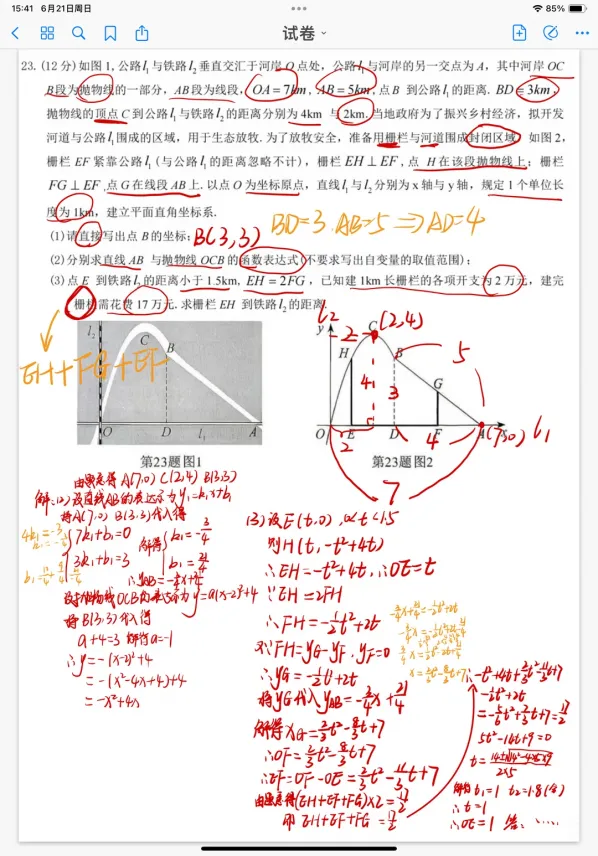 15:41 6月21日周日
85%
试卷
23. (12 分) 如图 1, 公路 l₁ 与铁路 l₂ 垂直交汇于河岸 O 点处, 公路 l₁ 与河岸的另一交点为 A, 其中河岸 OC
B段为抛物线的一部分, AB 段为线段, OA=7km, AB=5km, 点 B 到公路 l₁ 的距离. BD=3km,
抛物线的顶点 C 到公路 l₁ 与铁路 l₂ 的距离分别为 4km 与 2km. 当地政府为了振兴乡村经济, 拟开发
河道与公路 l₁ 围成的区域, 用于生态放牧. 为了放牧安全, 准备用栅栏与河道围成封闭区域. 如图 2,
栅栏 EF 紧靠公路 l₁ (与公路 l₁ 的距离忽略不计), 栅栏 EH⊥EF, 点 H 在该段抛物线上; 栅栏
FG⊥EF, 点 G 在线段 AB 上. 以点 O 为坐标原点, 直线 l₁ 与 l₂ 分别为 x 轴与 y 轴, 规定 1 个单位长
度为 1km, 建立平面直角坐标系.
BD=3.AB=5⟹AD=4
(1)请直接写出点 B 的坐标; B(3,3)
(2)分别求直线 AB 与抛物线 OCB 的函数表达式(不要求写出自变量的取值范围);
(3)点 E 到铁路 l₂ 的距离小于 1.5km, EH=2FG, 已知建 1km 长栅栏的各项开支为 2 万元, 建完
栅栏需花费 17 万元. 求栅栏 EH 到铁路 l₂ 的距离.
EH+FG+EF
l₂ C B O D l₁ A
l₂ y 2 C (2,4)
H B 5
4 3 G
O E D F A (7,0) l₁
2 4
7
第23题图1
第23题图2
由题意得 A(7,0) C(2,4) B(3,3)
解:(2)设直线AB的表达示为y₁=k₁x+b₁
将A(7,0) B(3,3)代入得
7k₁+b₁=0
3k₁+b₁=3
4k₁=-3
解得 k₁=-3/4
b₁=21/4
∴yAB=-3/4x+21/4
y=a(x-2)²+4
将B(3,3)代入得
a+4=3 解得a=-1
∴y=-(x-2)²+4
=-(x²-4x+4)+4
=-x²+4x
(3)设E(t,0), 0<t<1.5
则H(t,-t²+4t)
∴EH=-t²+4t, ∴OE=t
∵EH=2FH
∴FH=-1/2t²+2t
又∵FH=yG-yF, yF=0
∴yG=-1/2t²+2t
将yG代入yAB=-3/4x+21/4
解得xG=2/3t²-8/3t+7
∴OF=2/3t²-8/3t+7
∴EF=OF-OE=2/3t²-11/3t+7
由题意得(EH+EF+FG)×2=17
即 EH+EF+FG=17/2
-3/4x+21/4=-1/2t²+2t
x=2/3t²-8/3t+7
∴-t²+4t+2/3t²-11/3t+7
-1/2t²+2t
=-5/6t²+7/3t+7=17/2
5t²-14t+9=0
t=14±√14²-4×5×9
2×5
解得t₁=1 t₂=1.8(舍)
∴t=1
∴OE=1 答:……